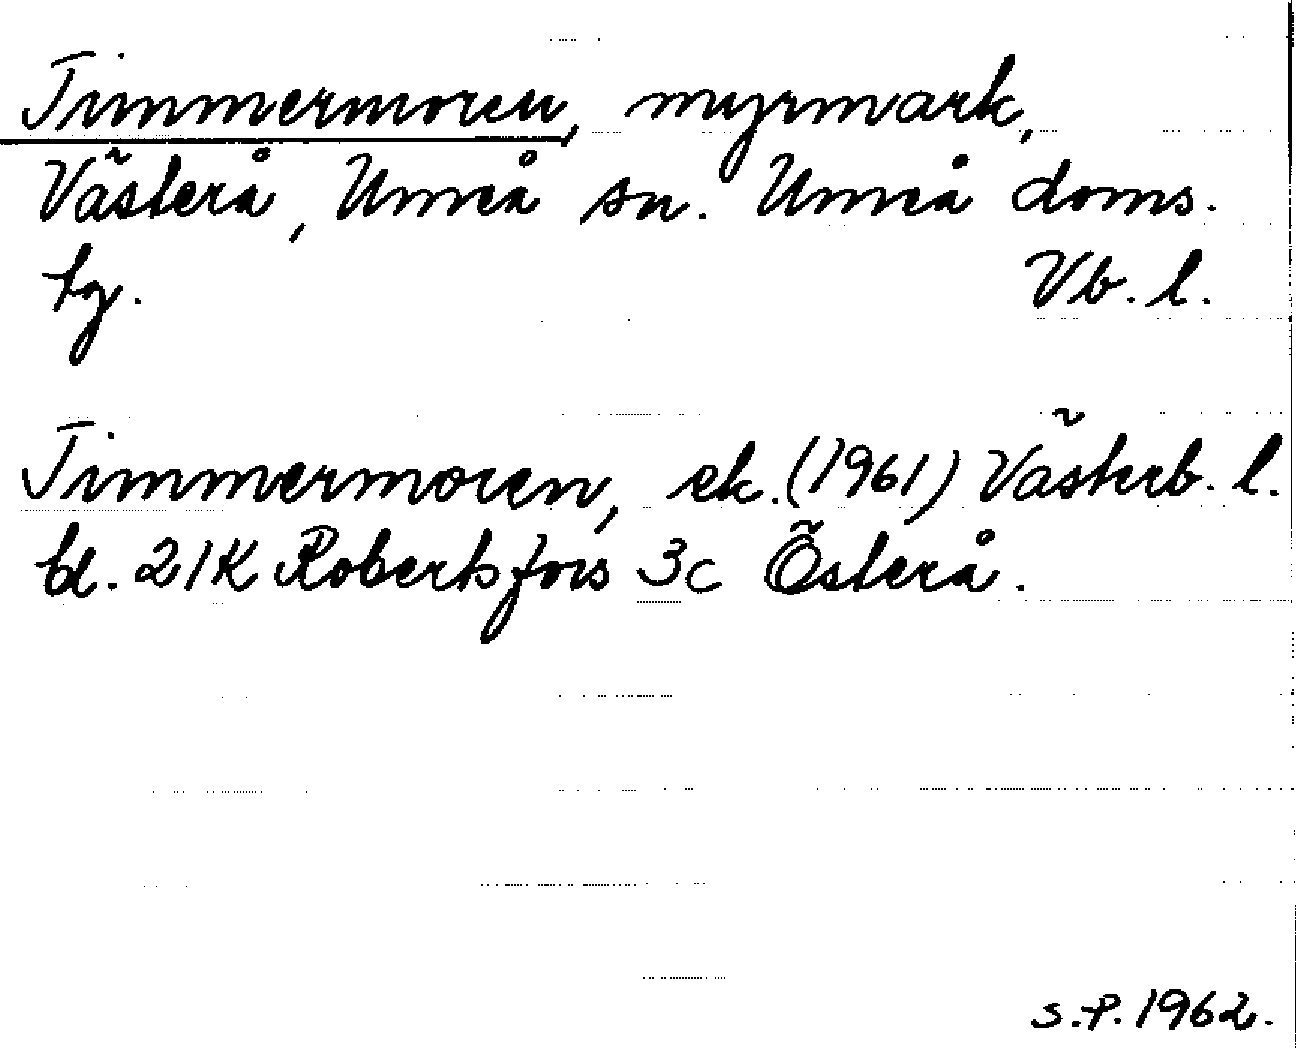 Timmermoren, myrmark,
Västerå, Umeå sn. Umeå doms.
tg. Vb. l.
Timmermoren, ek. (1961) Västerb. l.
bl. 21K Robertsfors 3c Österå.
S.P. 1962.